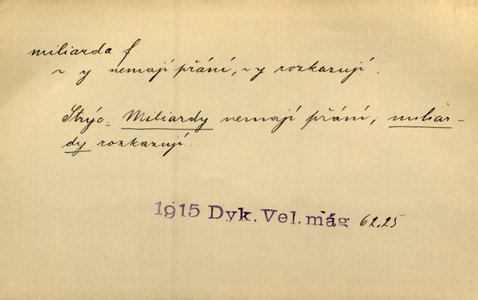 miliarda f.
~ y nemají přání, ~y rozkazují.
Strýc: Miliardy nemají přání; miliar-
dy rozkazují.
1915 Dyk. Vel. mág 62,25